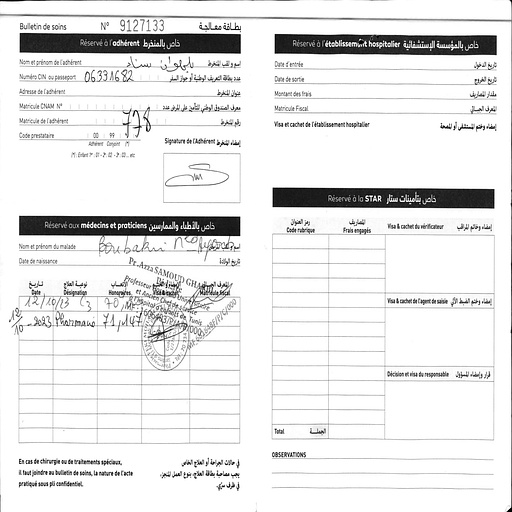 Bulletin de soins N° 9127133 بطاقة معالجة
Réservé à l'adhérent خاص بالمنخرط
Nom et prénom de l'adhérent إسم و لقب المنخرط
Numéro CIN ou passeport 06331682 عدد بطاقة التعريف الوطنية أو جواز السفر
Adresse de l'adhérent عنوان المنخرط
Matricule CNAM N° معرف الصندوق الوطني للتأمين على المرض عدد
Matricule de l'adhérent 778 رقم المنخرط
Code prestataire 00 99 (*)
Adhérent Conjoint (*)
(*) : Enfant 1er : 01 - 2ème : 02 - 3ème : 03 ... etc
Signature de l'Adhérent إمضاء المنخرط
Réservé aux médecins et praticiens خاص بالأطباء والممارسين
Nom et prénom du malade Boubakri
Date de naissance تاريخ الولادة
Pr. Azza SAMOUD
تاريخ نوعية العلاج الأتعاب
Date Désignation Honoraires
12/10/23 C3 70
12/10-2023 Pharmacie 71,147
En cas de chirurgie ou de traitements spéciaux,
il faut joindre au bulletin de soins, la nature de l'acte
pratiqué sous pli confidentiel.
في حالات الجراحة أو العلاج الخاص
يجب مصاحبة بطاقة العلاج، بنوع العمل المنجز،
في ظرف سري.
Réservé à l'établissement hospitalier خاص بالمؤسسة الإستشفائية
Date d'entrée تاريخ الدخول
Date de sortie تاريخ الخروج
Montant des frais مقدار المصاريف
Matricule Fiscal المعرف الجبائي
Visa et cachet de l'établissement hospitalier إمضاء وختم المستشفى أو المصحة
Réservé à la STAR خاص بتأمينات ستار
رمز العنوان المصاريف
Code rubrique Frais engagés
Visa & cachet du vérificateur إمضاء وخاتم المراقب
Visa & cachet de l'agent de saisie
Décision et visa du responsable قرار وإمضاء المسؤول
Total الجملة
OBSERVATIONS